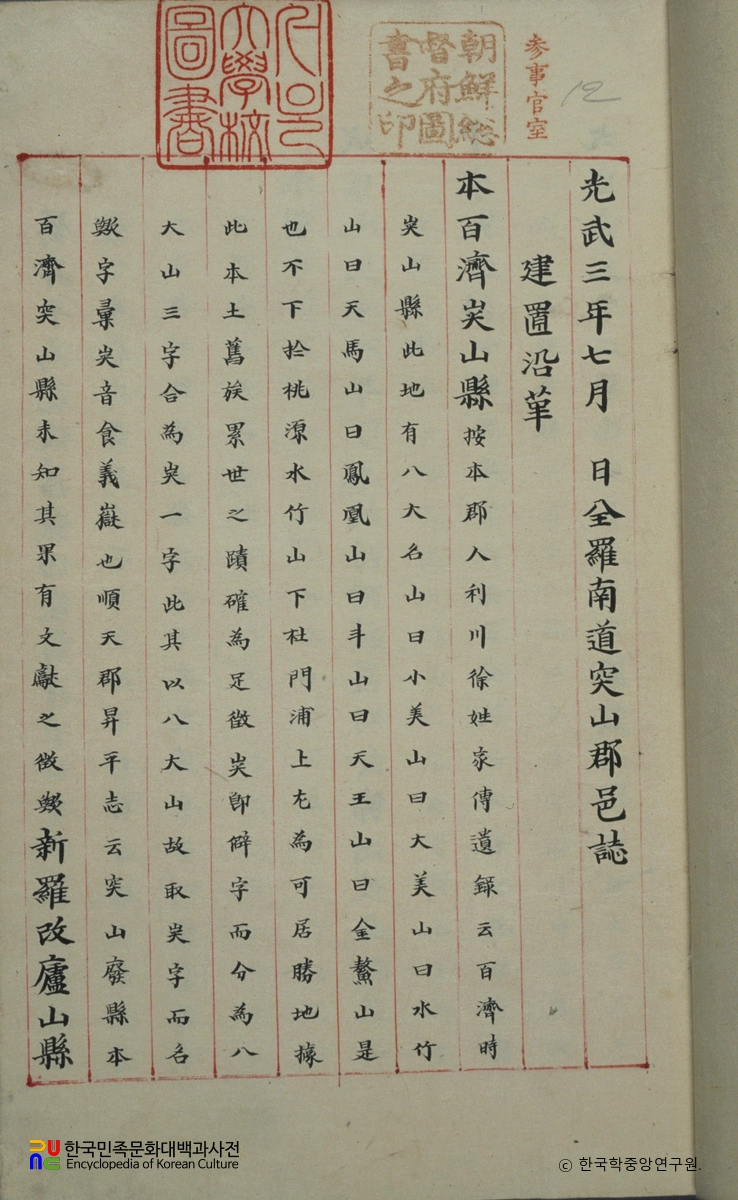 서울大學校圖書
朝鮮総督府圖書之印
参事官室
12
光武三年七月 日全羅南道突山郡邑誌
建置沿革
本百濟山縣按本郡人利川徐姓家傳遺錄云百濟時
山縣此地有八大名山曰小美山曰大美山曰水竹
山曰天馬山曰鳳凰山曰斗山曰天王山曰金鰲山是
也不下於桃源水竹山下杜門浦上尤為可居勝地據
此本土舊族累世之蹟確為足徵卽僻字而分為八
大山三字合為一字此其以八大山故取字而名
歟字彙音食義嶽也順天郡昇平志云突山廢縣本
百濟突山縣未知其果有文獻之徵歟新羅改廬山縣
한국민족문화대백과사전
Encyclopedia of Korean Culture
© 한국학중앙연구원.